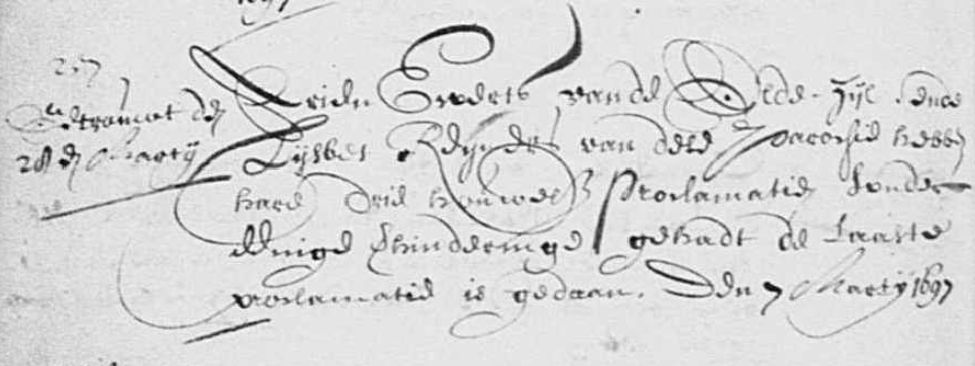 1697
257
Getrouwt den
28 d Marty
Arien Everts van de Olde-Zijl ende
Lijsbet Reijnders van dese Parochie hebben
hare drie houwelix Proclamatien sonder
eenige hinderinge gehadt de laaste
proclamatie is gedaan. Den 7 Marty 1697